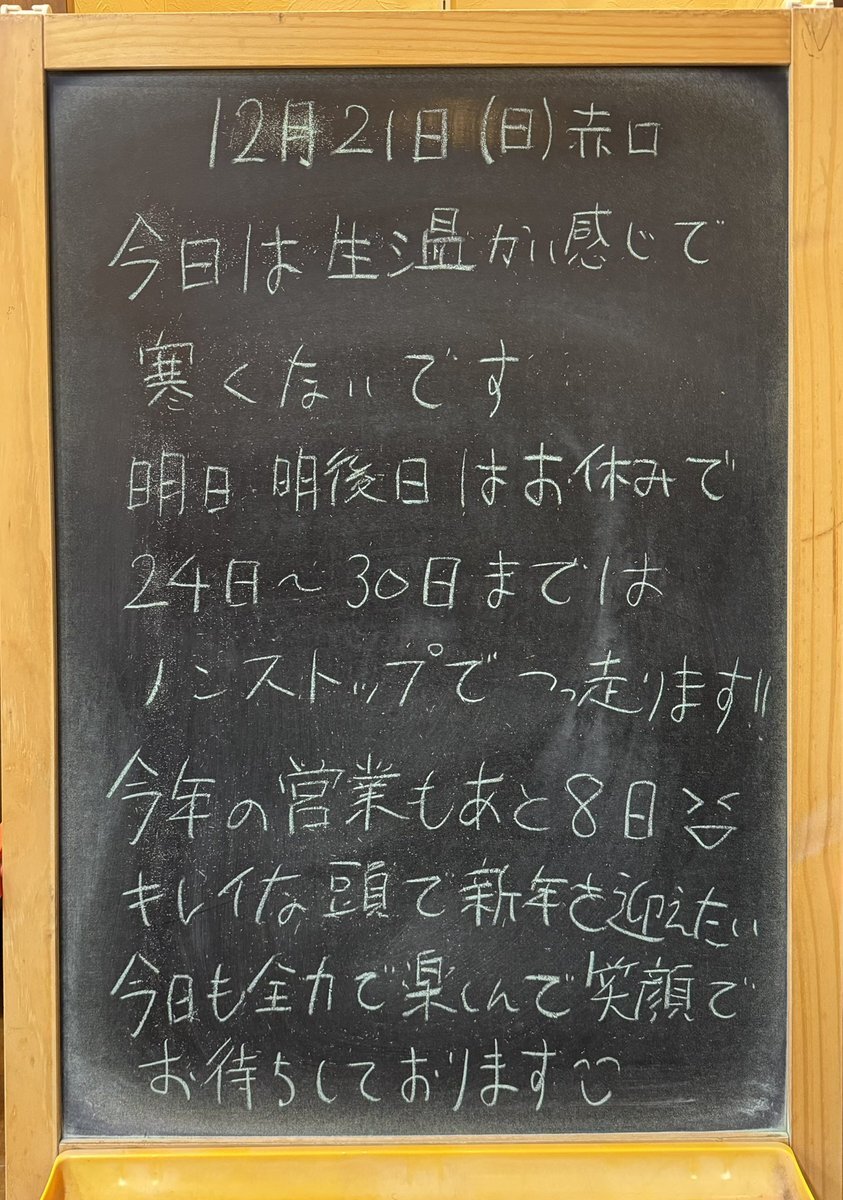 12月21日(日)赤口
今日は生温かい感じで
寒くないです
明日 明後日はお休みで
24日～30日までは
ノンストップでつっ走ります!!
今年の営業もあと8日
キレイな頭で新年を迎えたい
今日も全力で楽しんで笑顔で
お待ちしております